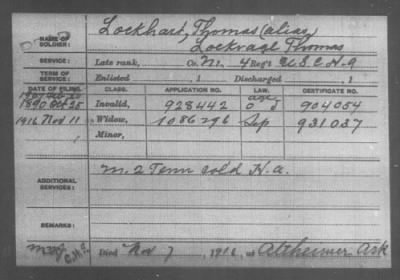 NAME OF SOLDIER: Lockhart, Thomas (alias)
Lockridge Thomas
SERVICE: Late rank, Co. M, 4 Reg't U.S.C.H.A
TERM OF SERVICE: Enlisted , 1 Discharged , 1
DATE OF FILING. CLASS. APPLICATION NO. LAW. CERTIFICATE NO.
1907 Feb
1890 Oct 25 Invalid, 928442 904054
1916 Nov 11 Widow, 1086296 Sep 931037
Minor,
ADDITIONAL SERVICES: M. 2 Tenn cold H.A.
REMARKS:
Died Nov 7, 1916, at Altheimer Ark